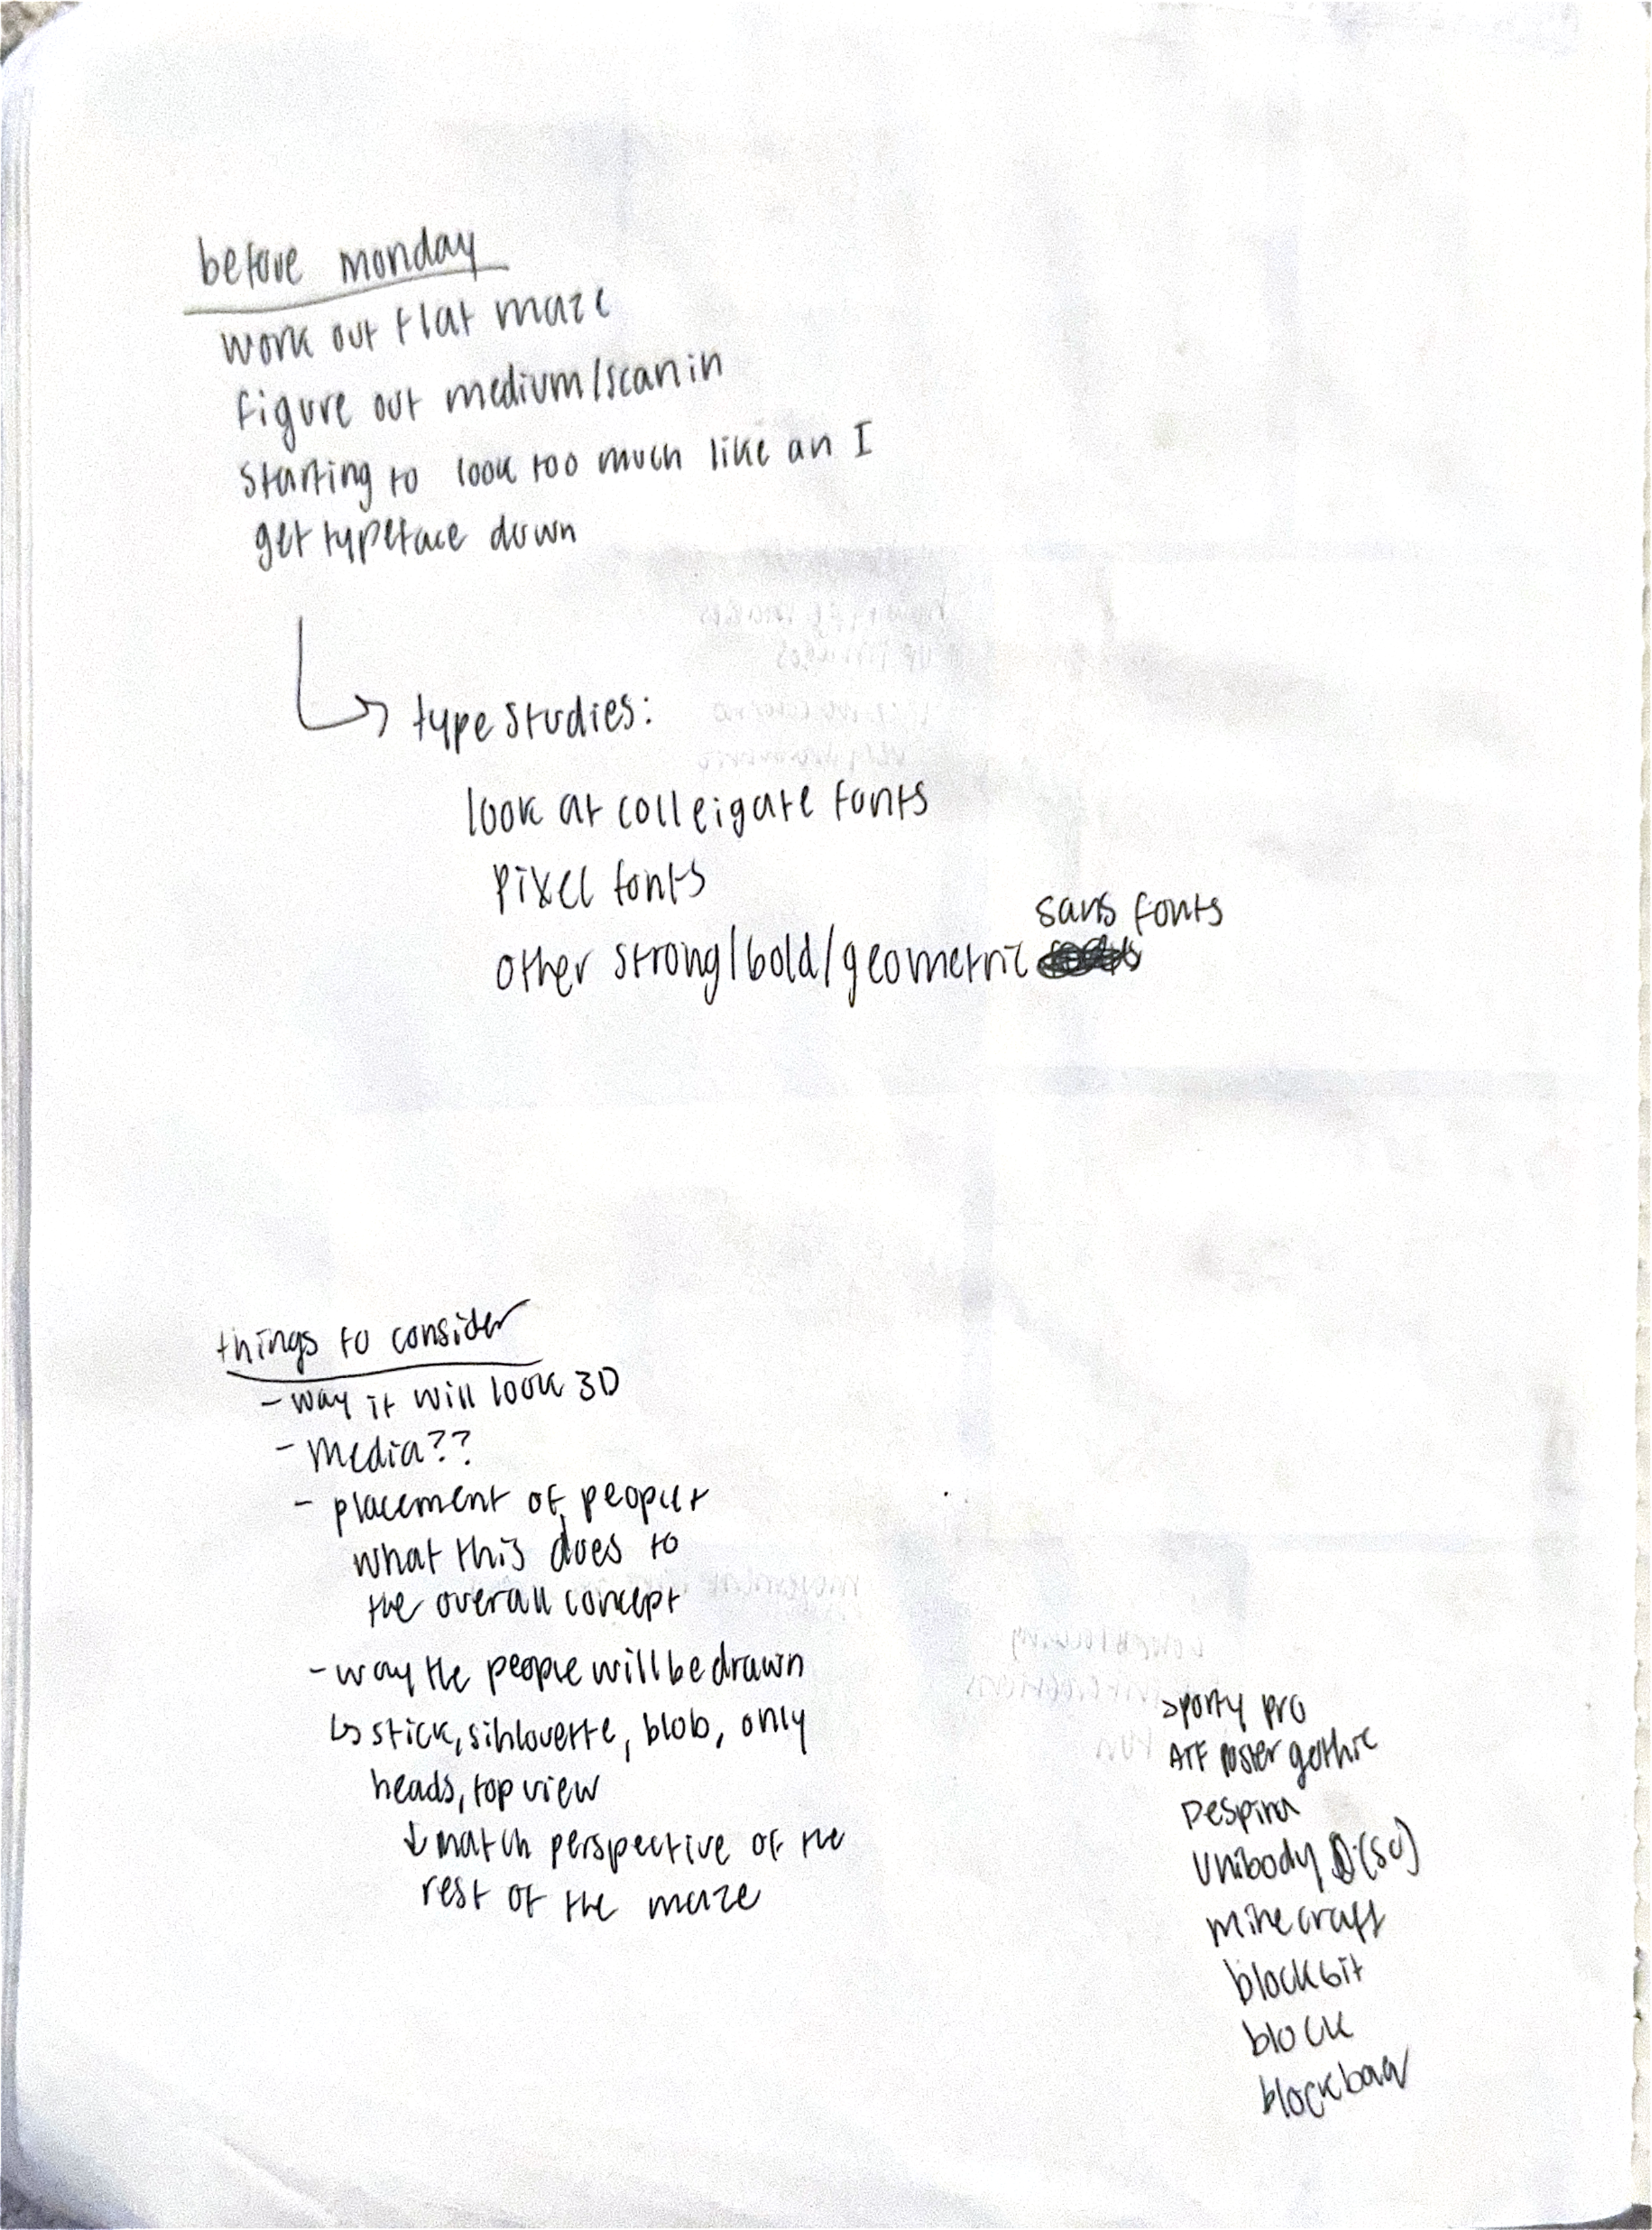 before monday
work out flat maze
figure out medium/scan in
starting to look too much like an I
get typeface down
type studies:
look at colleigate fonts
pixel fonts
sans fonts
other strong/bold/geometric
things to consider
- way it will look 3D
- media??
- placement of people +
what this does to
the overall concept
- way the people will be drawn
↳ stick, sihlouette, blob, only
heads, top view
↓ match perspective of the
rest of the maze
sporty pro
ATF poster gothic
Despina
unibody (SC)
minecraft
blockbit
block